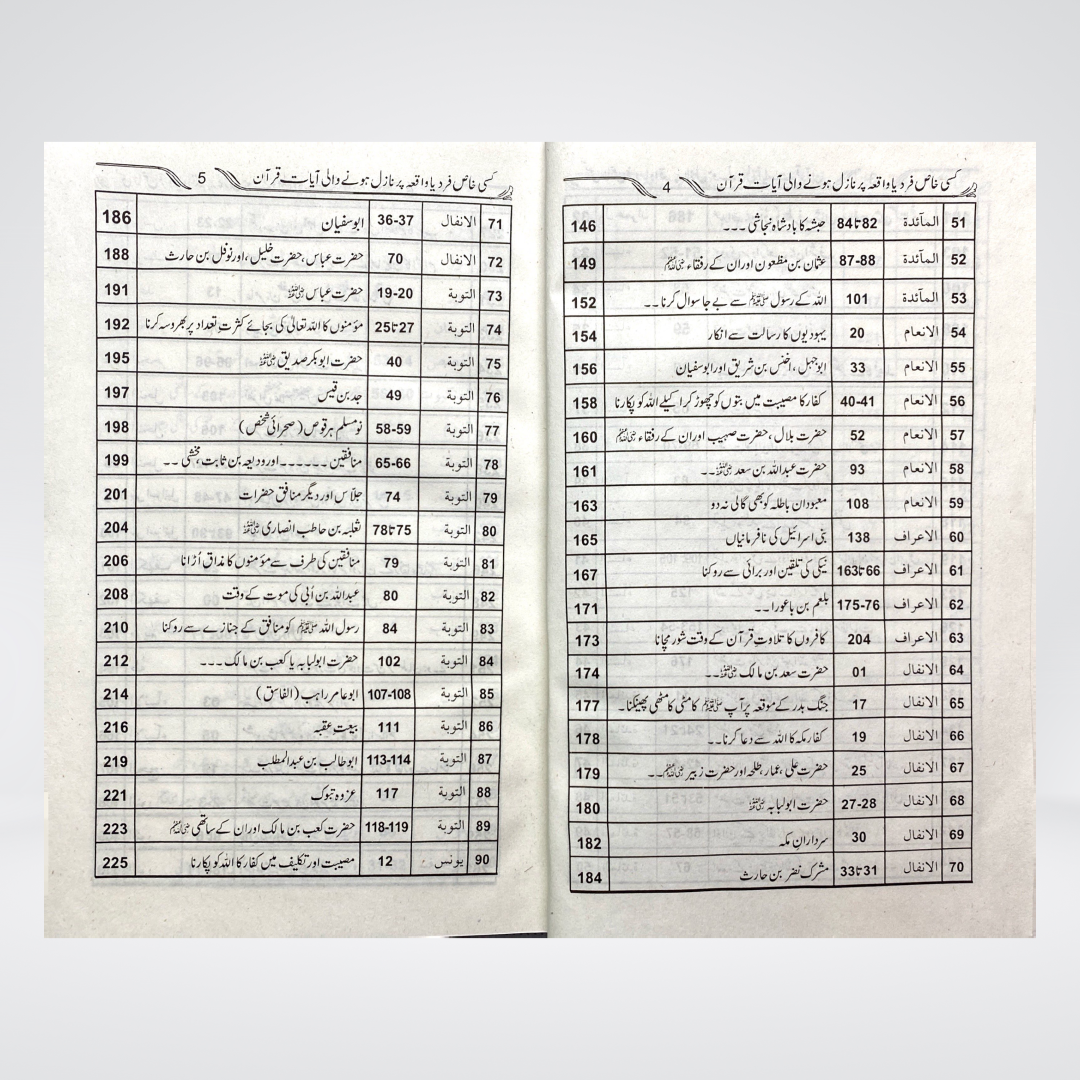 کسی خاص فرد یا واقعہ پر نازل ہونے والی آیات قرآن 4
51 المآئدة 82تا84 حبشہ کا بادشاہ نجاشی ۔۔۔ 146
52 المآئدة 87-88 عثمان بن مظعون اور ان کے رفقاء رضی اللہ عنہم 149
53 المآئدة 101 اللہ کے رسول ﷺ سے بے جا سوال کرنا ۔۔ 152
54 الانعام 20 یہودیوں کا رسالت سے انکار 154
55 الانعام 33 ابوجہل، اخنس بن شریق اور ابوسفیان 156
56 الانعام 40-41 کفار کا مصیبت میں بتوں کو چھوڑ کر اکیلے اللہ کو پکارنا 158
57 الانعام 52 حضرت بلال، حضرت صہیب اور ان کے رفقاء رضی اللہ عنہم 160
58 الانعام 93 حضرت عبداللہ بن سعد رضی اللہ عنہ ۔۔ 161
59 الانعام 108 معبودان باطلہ کو بھی گالی نہ دو 163
60 الاعراف 138 بنی اسرائیل کی نافرمانیاں 165
61 الاعراف 163تا66 نیکی کی تلقین اور برائی سے روکنا 167
62 الاعراف 175-76 بلعم بن باعورا ۔۔ 171
63 الاعراف 204 کافروں کا تلاوتِ قرآن کے وقت شور مچانا 173
64 الانفال 01 حضرت سعد بن مالک رضی اللہ عنہ ۔۔ 174
65 الانفال 17 جنگ بدر کے موقعہ پر آپ ﷺ کا مٹی کا مٹھی پھینکنا۔ 177
66 الانفال 19 کفار مکہ کا اللہ سے دعا کرنا ۔۔ 178
67 الانفال 25 حضرت علی، عمار، طلحہ اور حضرت زبیر رضی اللہ عنہم ۔۔ 179
68 الانفال 27-28 حضرت ابولبابہ رضی اللہ عنہ 180
69 الانفال 30 سردارانِ مکہ 182
70 الانفال 31تا33 مشرک نضر بن حارث 184
کسی خاص فرد یا واقعہ پر نازل ہونے والی آیات قرآن 5
71 الانفال 36-37 ابوسفیان 186
72 الانفال 70 حضرت عباس، حضرت خلیل، اور نوفل بن حارث 188
73 التوبة 19-20 حضرت عباس رضی اللہ عنہ 191
74 التوبة 25تا27 مؤمنوں کا اللہ تعالیٰ کی بجائے کثرتِ تعداد پر بھروسہ کرنا 192
75 التوبة 40 حضرت ابوبکر صدیق رضی اللہ عنہ 195
76 التوبة 49 جد بن قیس 197
77 التوبة 58-59 نومسلم ہرقوص (صحرائی شخص) 198
78 التوبة 65-66 منافقین ۔۔۔۔۔۔ اور ودیعہ بن ثابت، مخشی ۔۔ 199
79 التوبة 74 جلّاس اور دیگر منافق حضرات 201
80 التوبة 75تا78 ثعلبہ بن حاطب انصاری رضی اللہ عنہ 204
81 التوبة 79 منافقین کی طرف سے مؤمنوں کا مذاق اُڑانا 206
82 التوبة 80 عبداللہ بن اُبی کی موت کے وقت 208
83 التوبة 84 رسول اللہ ﷺ کو منافق کے جنازے سے روکنا 210
84 التوبة 102 حضرت ابولبابہ یا کعب بن مالک ۔۔۔ 212
85 التوبة 107-108 ابوعامر راہب (الفاسق) 214
86 التوبة 111 بیعت عقبہ 216
87 التوبة 113-114 ابوطالب بن عبدالمطلب 219
88 التوبة 117 عزوہ تبوک 221
89 التوبة 118-119 حضرت کعب بن مالک اور ان کے ساتھی رضی اللہ عنہم 223
90 یونس 12 مصیبت اور تکلیف میں کفار کا اللہ کو پکارنا 225